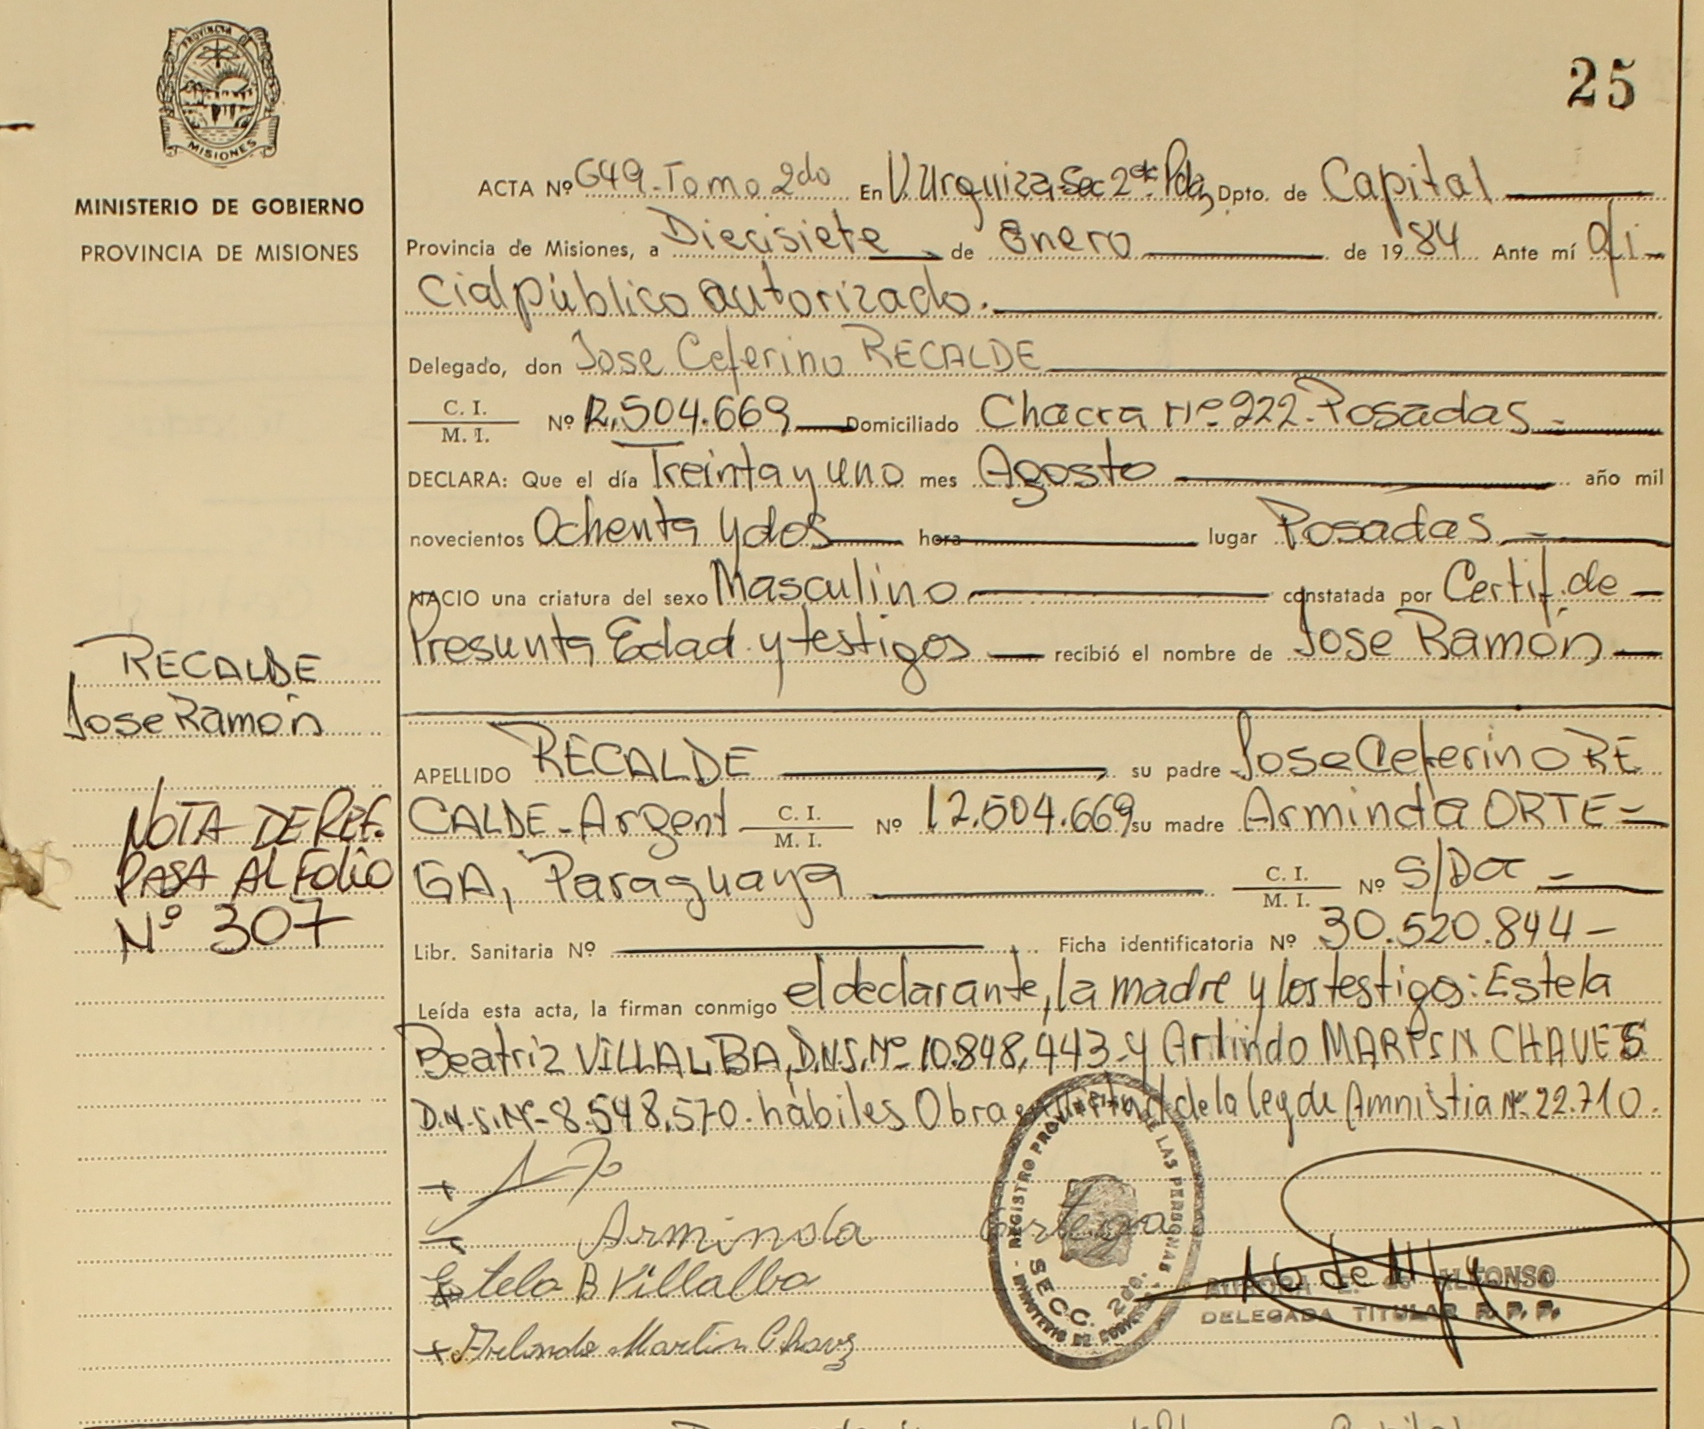 25
PROVINCIA
MISIONES
MINISTERIO DE GOBIERNO
PROVINCIA DE MISIONES
ACTA Nº 649-Tomo 2do En V. Urquiza-Sec 2da. Pdas, Dpto. de Capital
Provincia de Misiones, a Diecisiete de Enero de 1984 Ante mí Ofi-
cial público autorizado.
Delegado, don Jose Ceferino RECALDE
C. I.
M. I. Nº 12.504.669 Domiciliado Chacra nº 222-Posadas-
DECLARA: Que el día Treinta y uno mes Agosto año mil
novecientos Ochenta y dos hora lugar Posadas-
NACIO una criatura del sexo Masculino constatada por Certif. de
Presunta Edad y testigos recibió el nombre de Jose Ramón
RECALDE
Jose Ramón
APELLIDO RECALDE su padre Jose Ceferino RE
CALDE-Argent C. I. M. I. Nº 12.504.669 su madre Arminda ORTE=
GA, Paraguaya C. I. M. I. Nº S/Doc-
NOTA DE REF.
PASA AL FOLIO
Nº 307
Libr. Sanitaria Nº Ficha identificatoria Nº 30.520.844-
Leída esta acta, la firman conmigo el declarante, la madre y los testigos: Estela
Beatriz VILLALBA, D.N.I. Nº 10.848.443-y Arlindo MARTIN CHAVES
D.N.I. Nº-8.548.570. hábiles Obra en virtud de la ley de Amnistia Nº 22.710.
Arminda Ortega
Estela B Villalba
Arlindo Martin Chavez
REGISTRO PROVINCIAL DE LAS PERSONAS
SECC. 2da.
MINISTERIO DE GOBIERNO
AURORA E. de ALFONSO
DELEGADA TITULAR R. P. P.